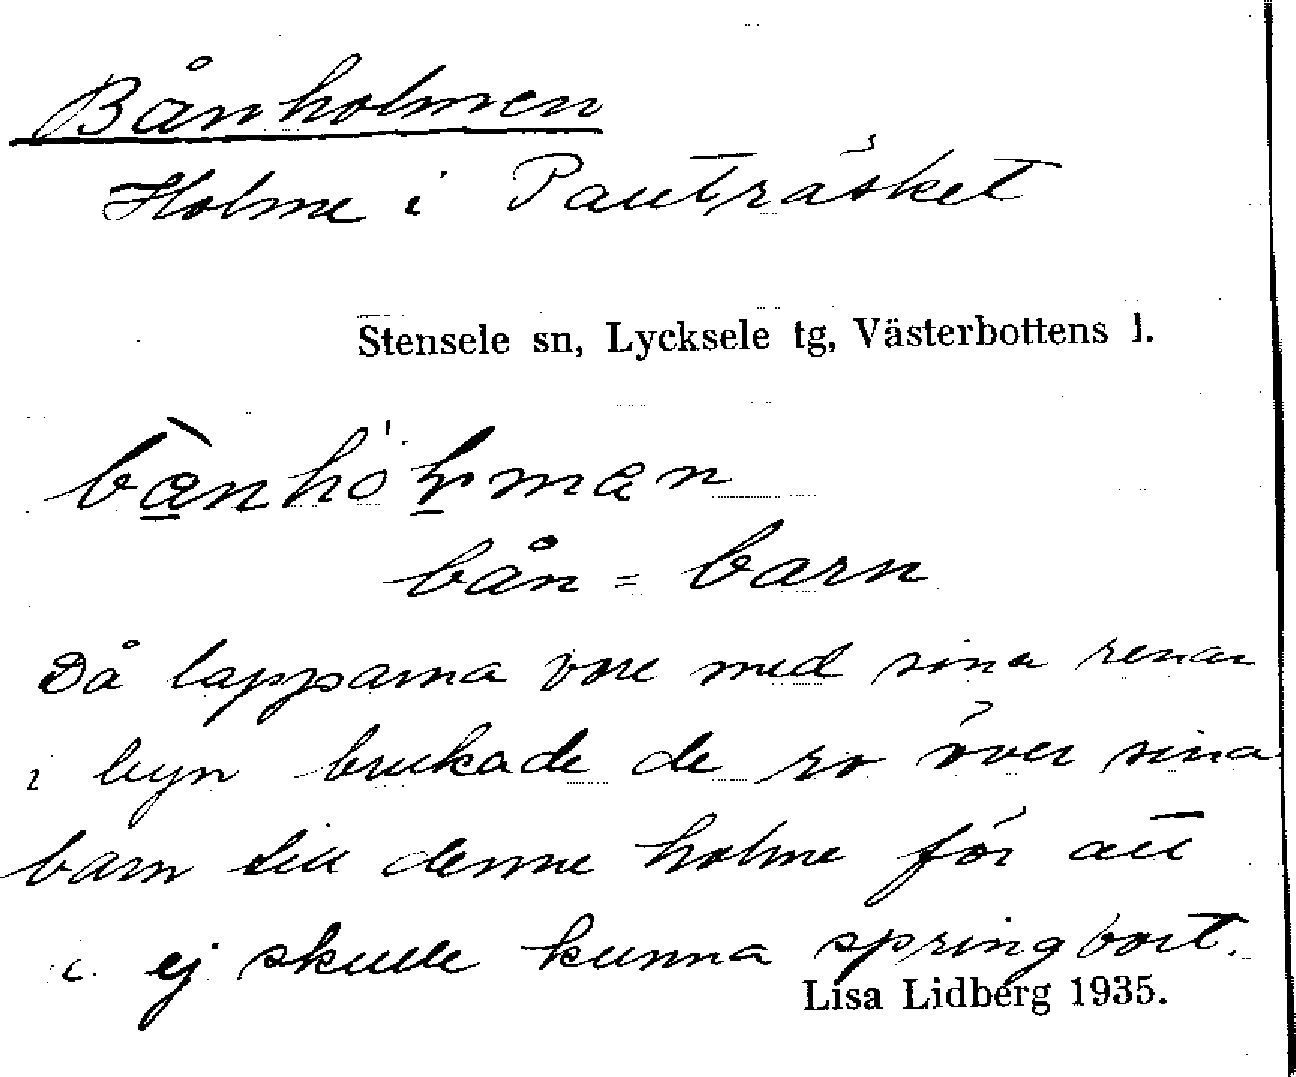 Bånholmen
Holme i Pauträsket
Stensele sn, Lycksele tg, Västerbottens l.
bån = barn
Då lapparna vore med sina renar
i byn brukade de ro över sina
barn till denne holme för att
ej skulle kunna spring bort.
Lisa Lidberg 1935.